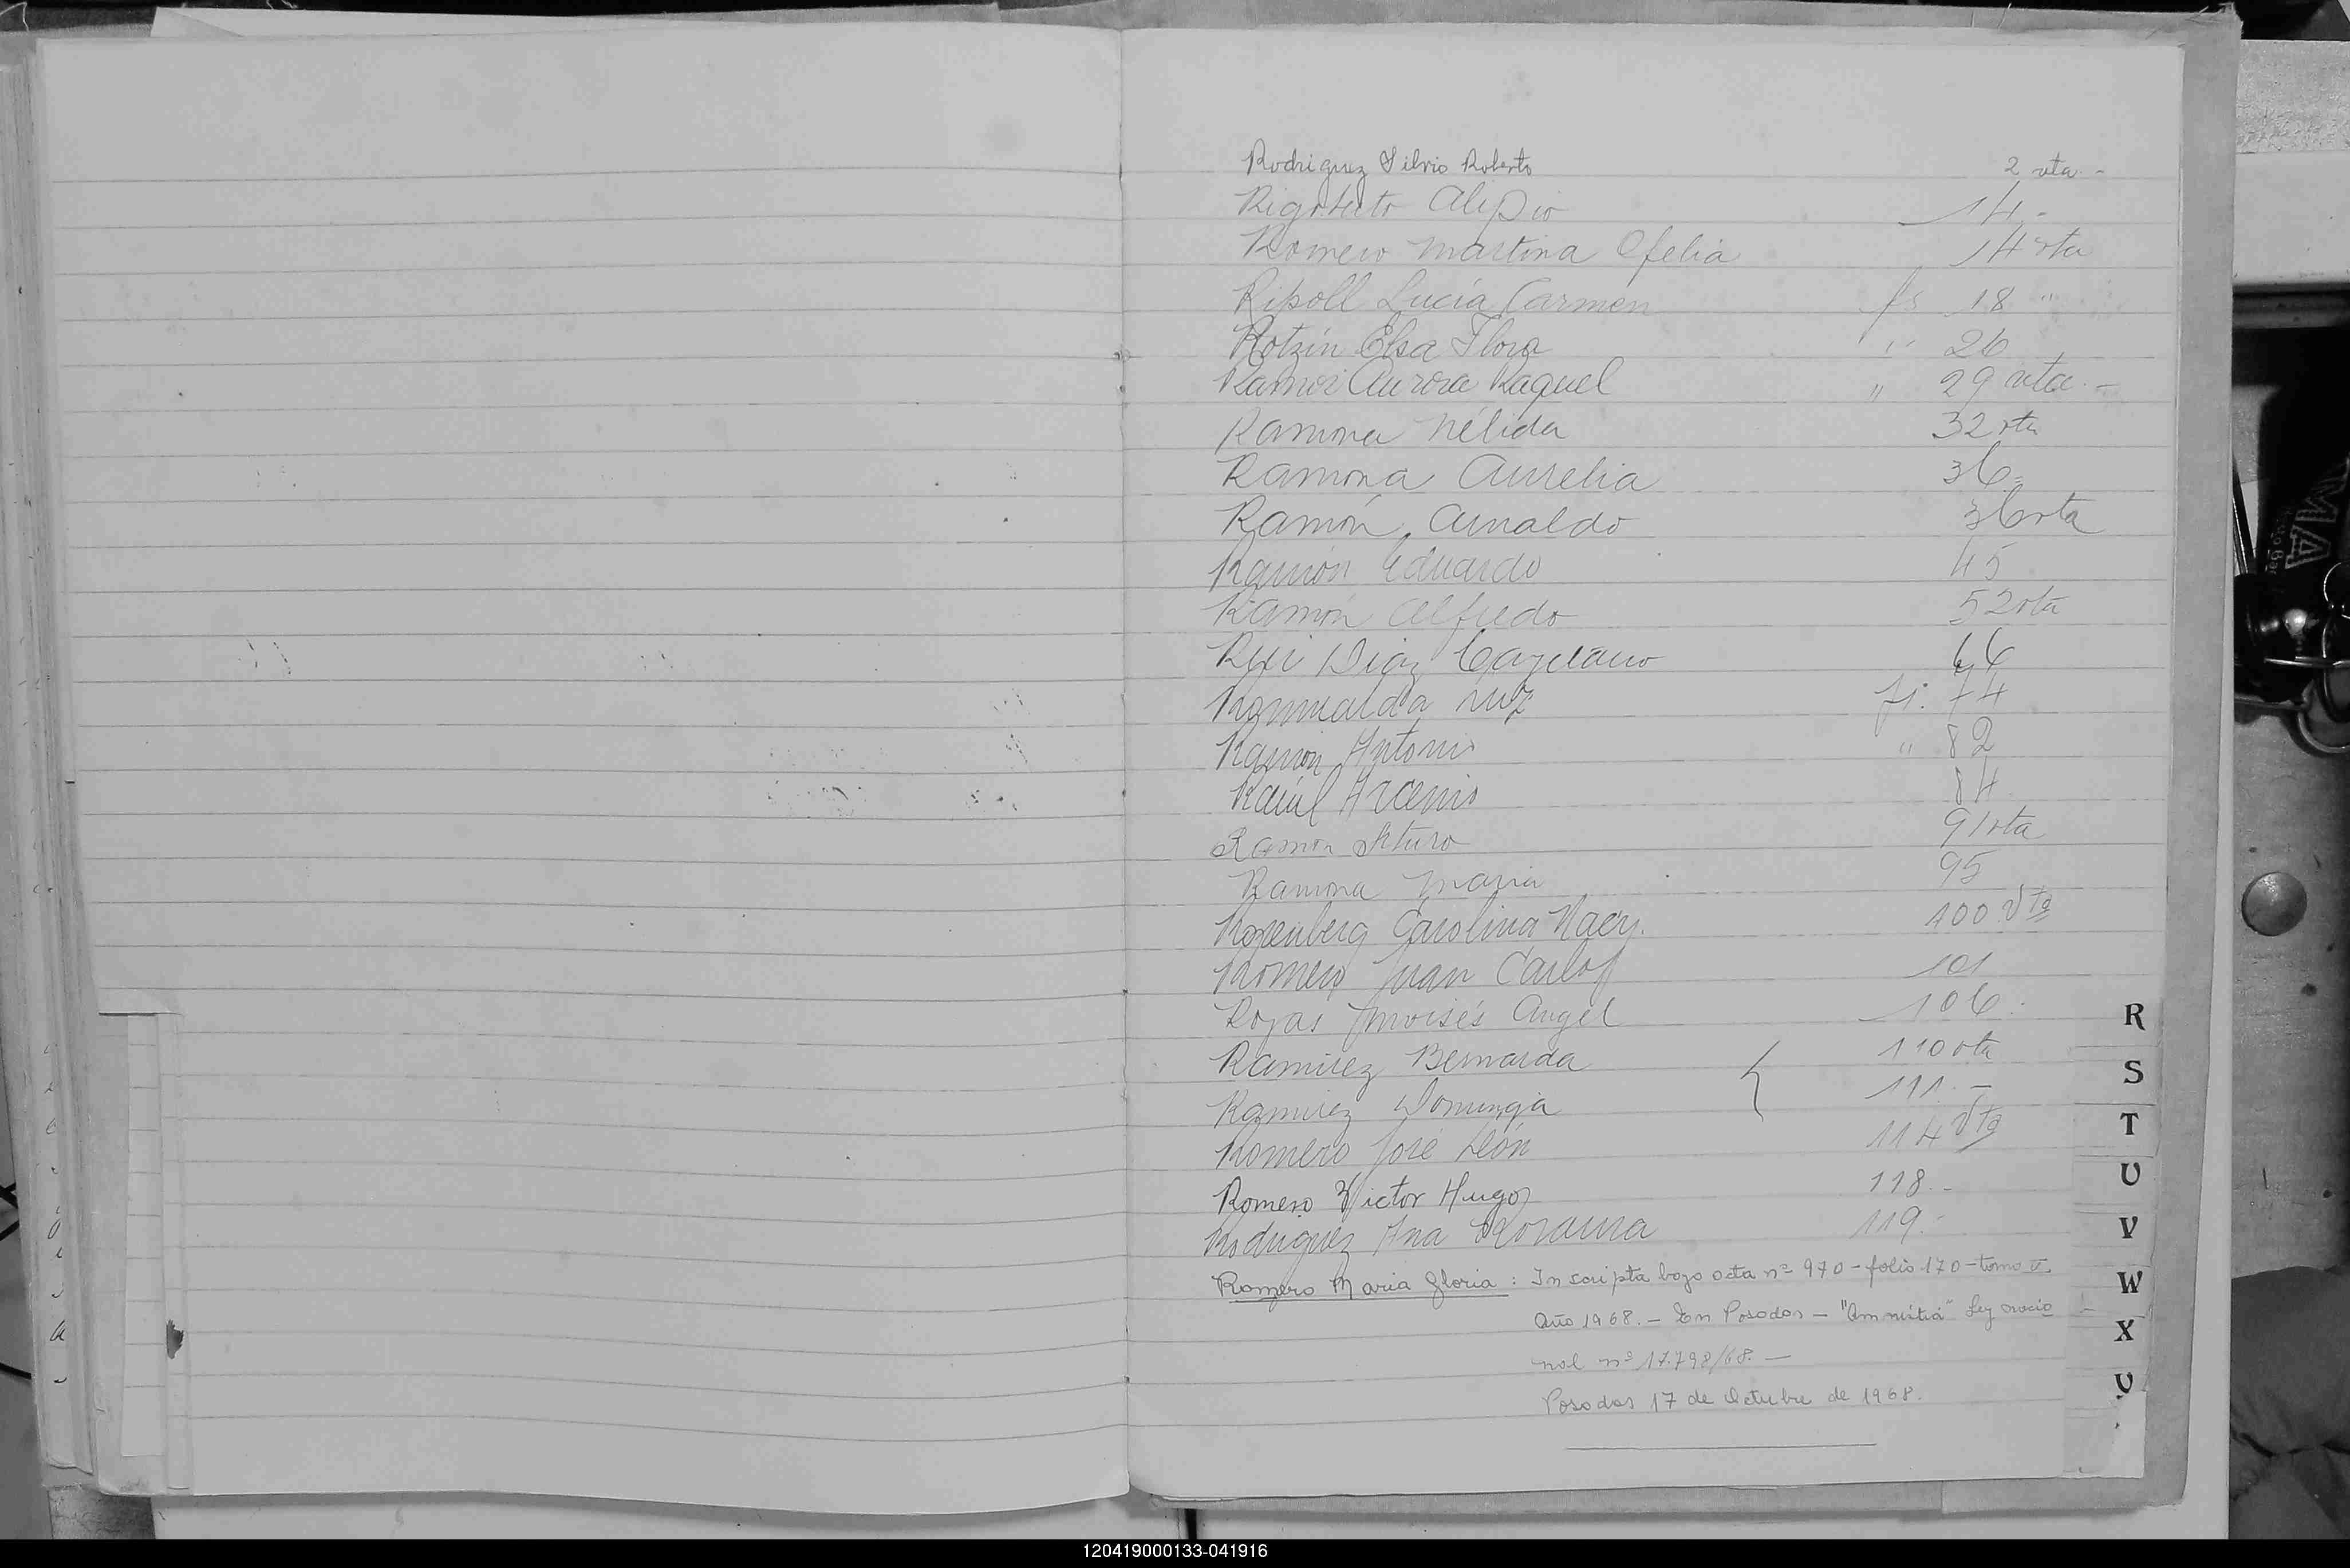 Rodriguez Silvio Roberto 2 vta. -
Rigoberto Alipio 14 -
Romero Martina Ofelia 14 vta
Ripoll Lucía Carmen fs 18 "
Rotzin Elsa Flora " 26
Ramos Aurora Raquel " 29 vta. -
Ramona Nélida 32 vta
Ramona Aurelia 36 =
Ramón Arnaldo 36 vta
Ramón Eduardo 45
Ramón Alfredo 52 vta
Diaz Cayetano 66
Romualda Ruiz fs. 74
Ramón Antonio " 82
Raúl Arcenio 84
Ramón Arturo 91 vta
Ramona Maria 95
Rosenberg Carolina 100 Vta
Romero Juan Carlos 101
Rojas Moisés Angel 106.
Ramirez Bernarda 110 vta
Ramirez Dominga 111. -
Romero José León 114 Vta
Romero Victor Hugo 118. -
Rodriguez Ana 119. -
Romero Maria Gloria : Inscripta bajo acta nº 970 - folio 170 - tomo V
Año 1968. - En Posadas - "Amnistia" Ley nacio
nal nº 17.798/68. -
Posadas 17 de Octubre de 1968.
R
S
T
U
V
W
X
Y
120419000133-041916